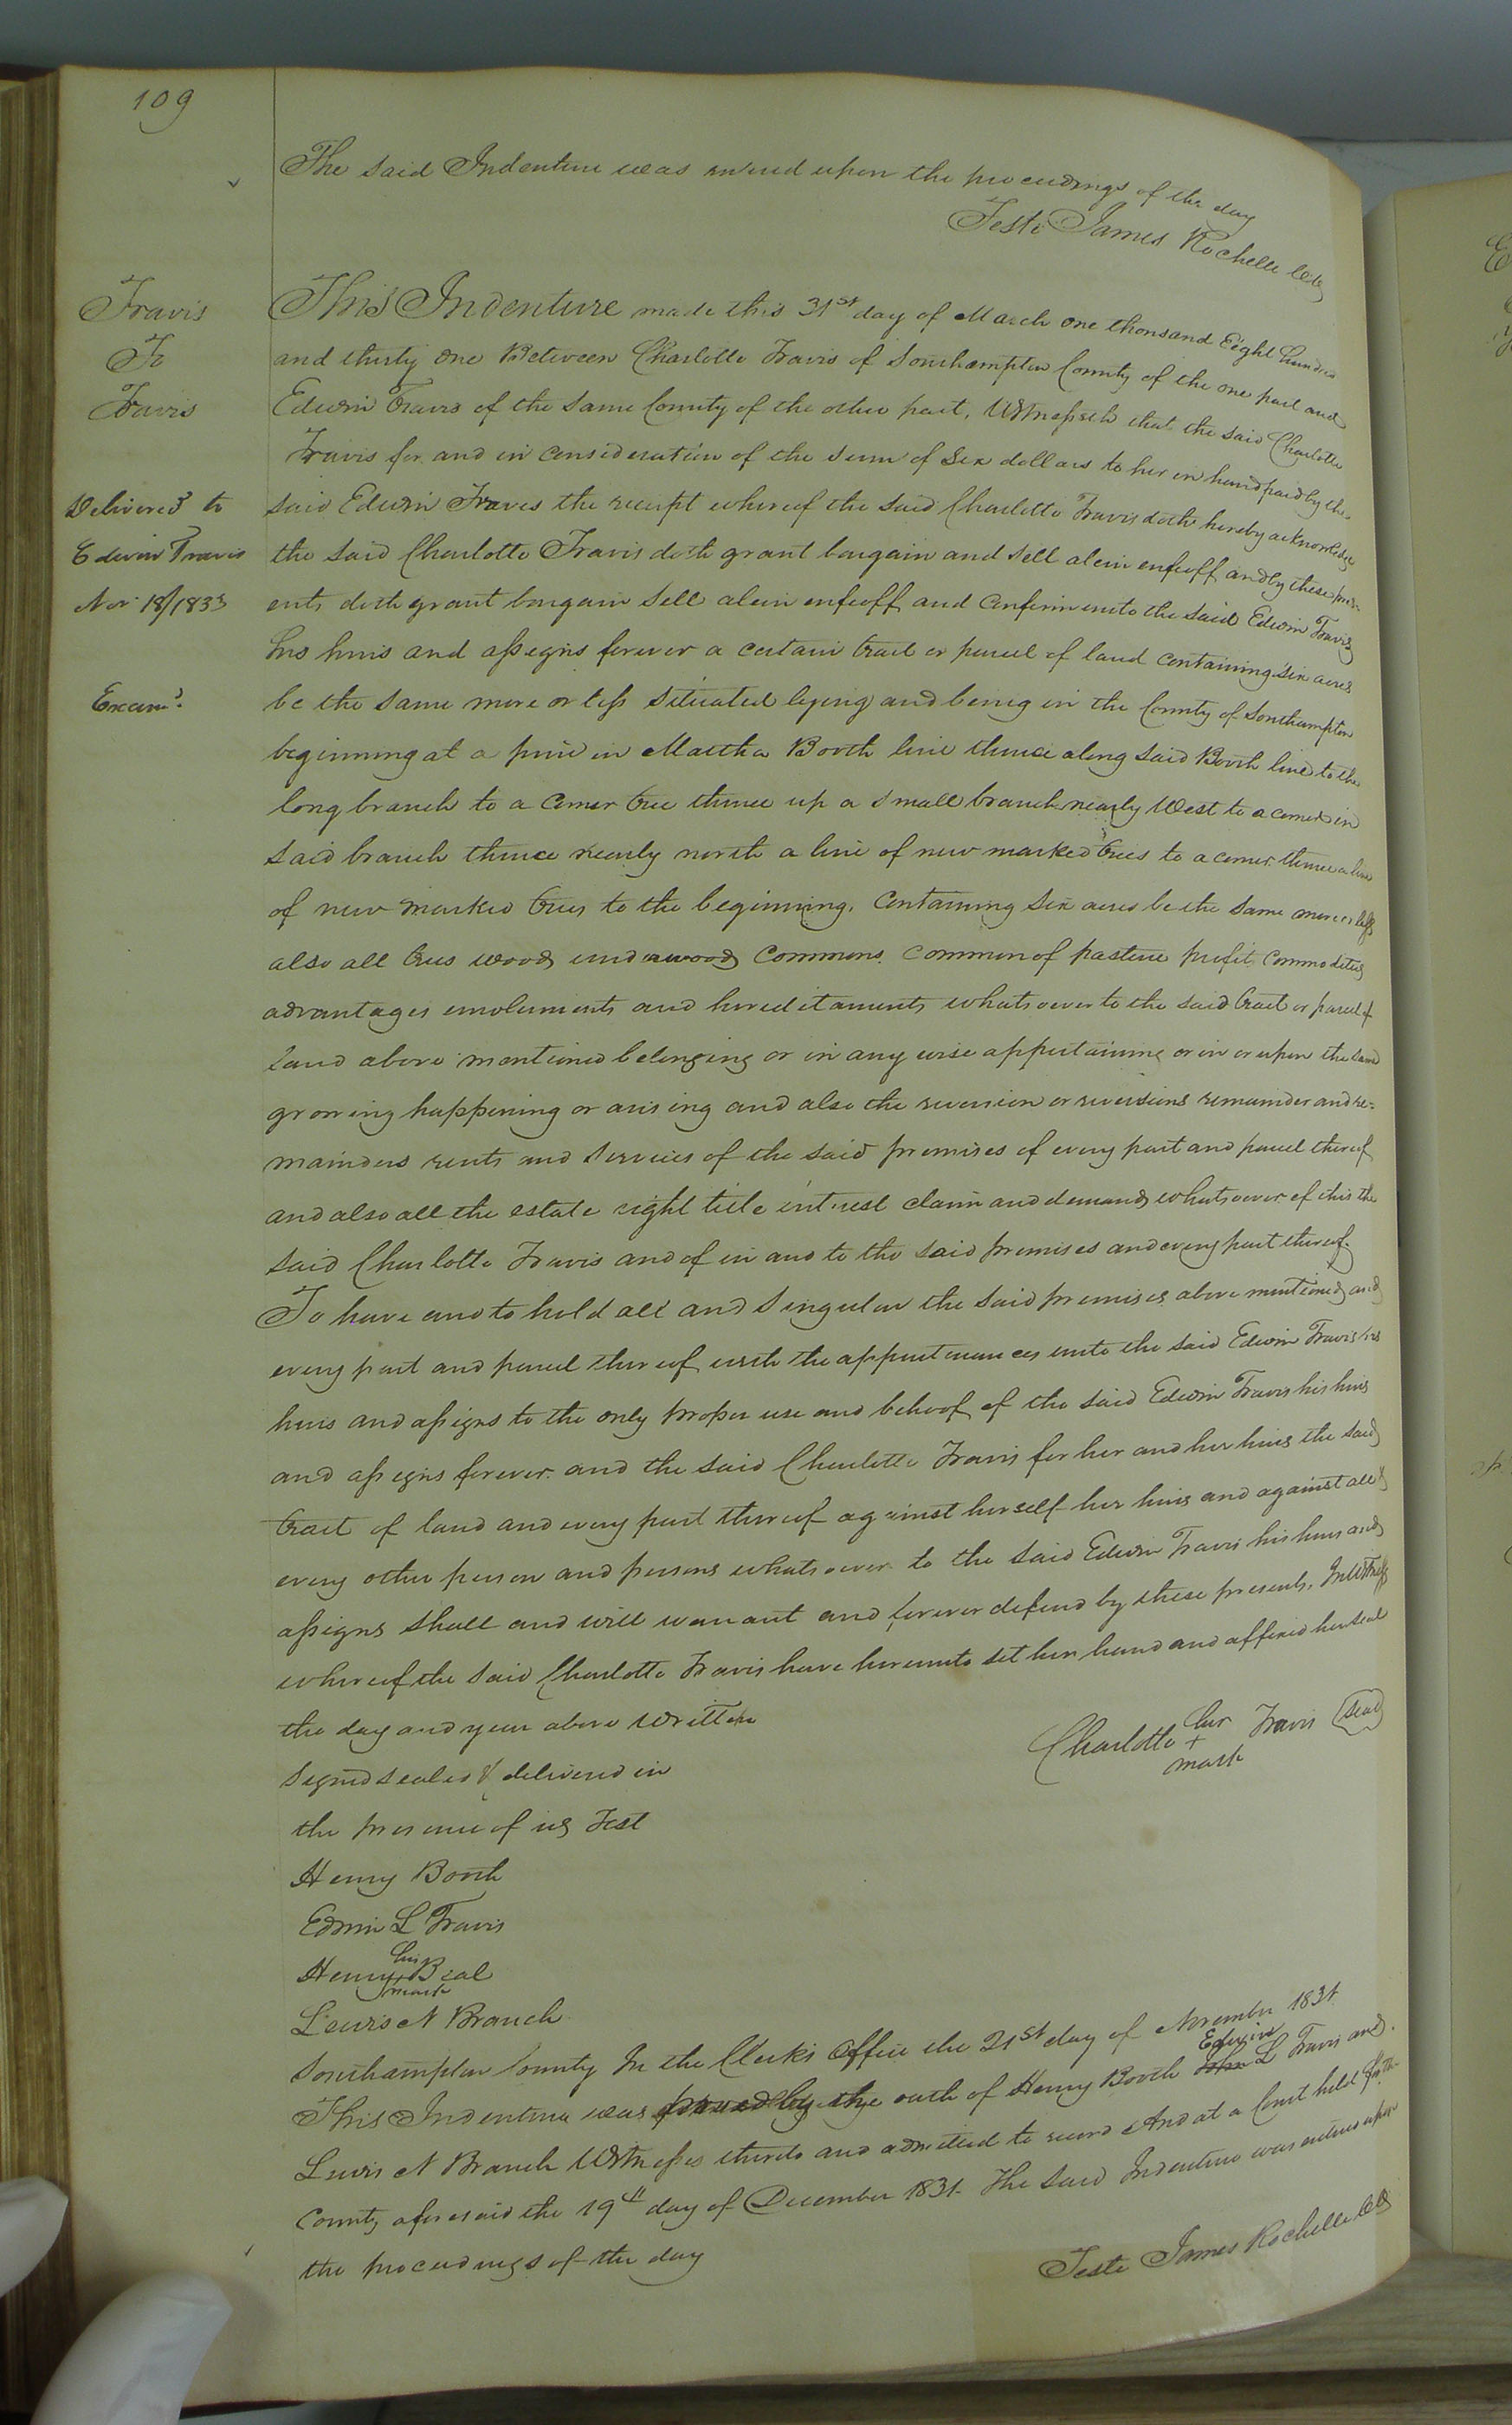 109
The said Indenture was entered upon the proceedings of the day
Teste James Rochelle Clk
Travis
To
Travis
This Indenture made this 31st day of March one thousand Eight hundred
and thirty one Between Charlotte Travis of Southampton County of the one part and
Edwin Travis of the same County of the other part, Witnesseth that the said Charlotte
Travis for and in consideration of the sum of Six dollars to her in hand paid by the
Delivered to
Edwin Travis
Nov 18/1833
said Edwin Travis the receipt whereof the said Charlotte Travis doth hereby acknowledge
the said Charlotte Travis doth grant bargain and sell alein enfeoff and by these pres-
ents doth grant bargain sell alein enfeoff and confirm unto the said Edwin Travis
his heirs and assigns forever a certain tract or parcel of land containing six acres
Examd
be the same more or less situated lying and being in the County of Southampton
beginning at a pine in Martha Booth line thence along said Booth line to the
long branch to a corner tree thence up a small branch nearly West to a corner in
said branch thence nearly north a line of new marked trees to a corner thence a line
of new marked trees to the beginning. Containing six acres be the same more or less
also all trees woods underwoods Commons. Common of pasture profit, Commodities
advantages emoluments and hereditaments whatsoever to the said tract or parcel of
land above mentioned belonging or in any wise appertaining or in or upon the said
growing happening or arising and also the reversion or reversions remainder and re=
mainders rents and services of the said premises of every part and parcel thereof
and also all the estate right title interest claim and demands whatsoever of this the
said Charlotte Travis and of in and to the said premises and every part thereof.
To have and to hold all and singular the said premises above mentioned and
every part and parcel thereof with the appurtenances unto the said Edwin Travis his
heirs and assigns to the only proper use and behoof of the said Edwin Travis his heirs
and assigns forever. and the said Charlotte Travis for her and her heirs the said
tract of land and every part thereof against herself her heirs and against all &
every other person and persons whatsoever to the said Edwin Travis his heirs and
assigns shall and will warrant and forever defend by these presents. In Witness
whereof the said Charlotte Travis have hereunto set her hand and affixed her seal
the day and year above Written
Charlotte her + mark Travis (Seal)
Signed sealed & delivered in
the presence of us Test
Henry Booth
Edwin L Travis
Henry his + mark Beal
Lewis N Branch
Southampton County In the Clerks Office the 21st day of November 1831
This Indenture was proved by the oath of Henry Booth Edwin L Travis and
Lewis N Branch Witnesses thereto and admitted to record And at a Court held for the
County aforesaid the 19th day of December 1831. The said Indenture was entered upon
the proceedings of the day
Teste James Rochelle Clk